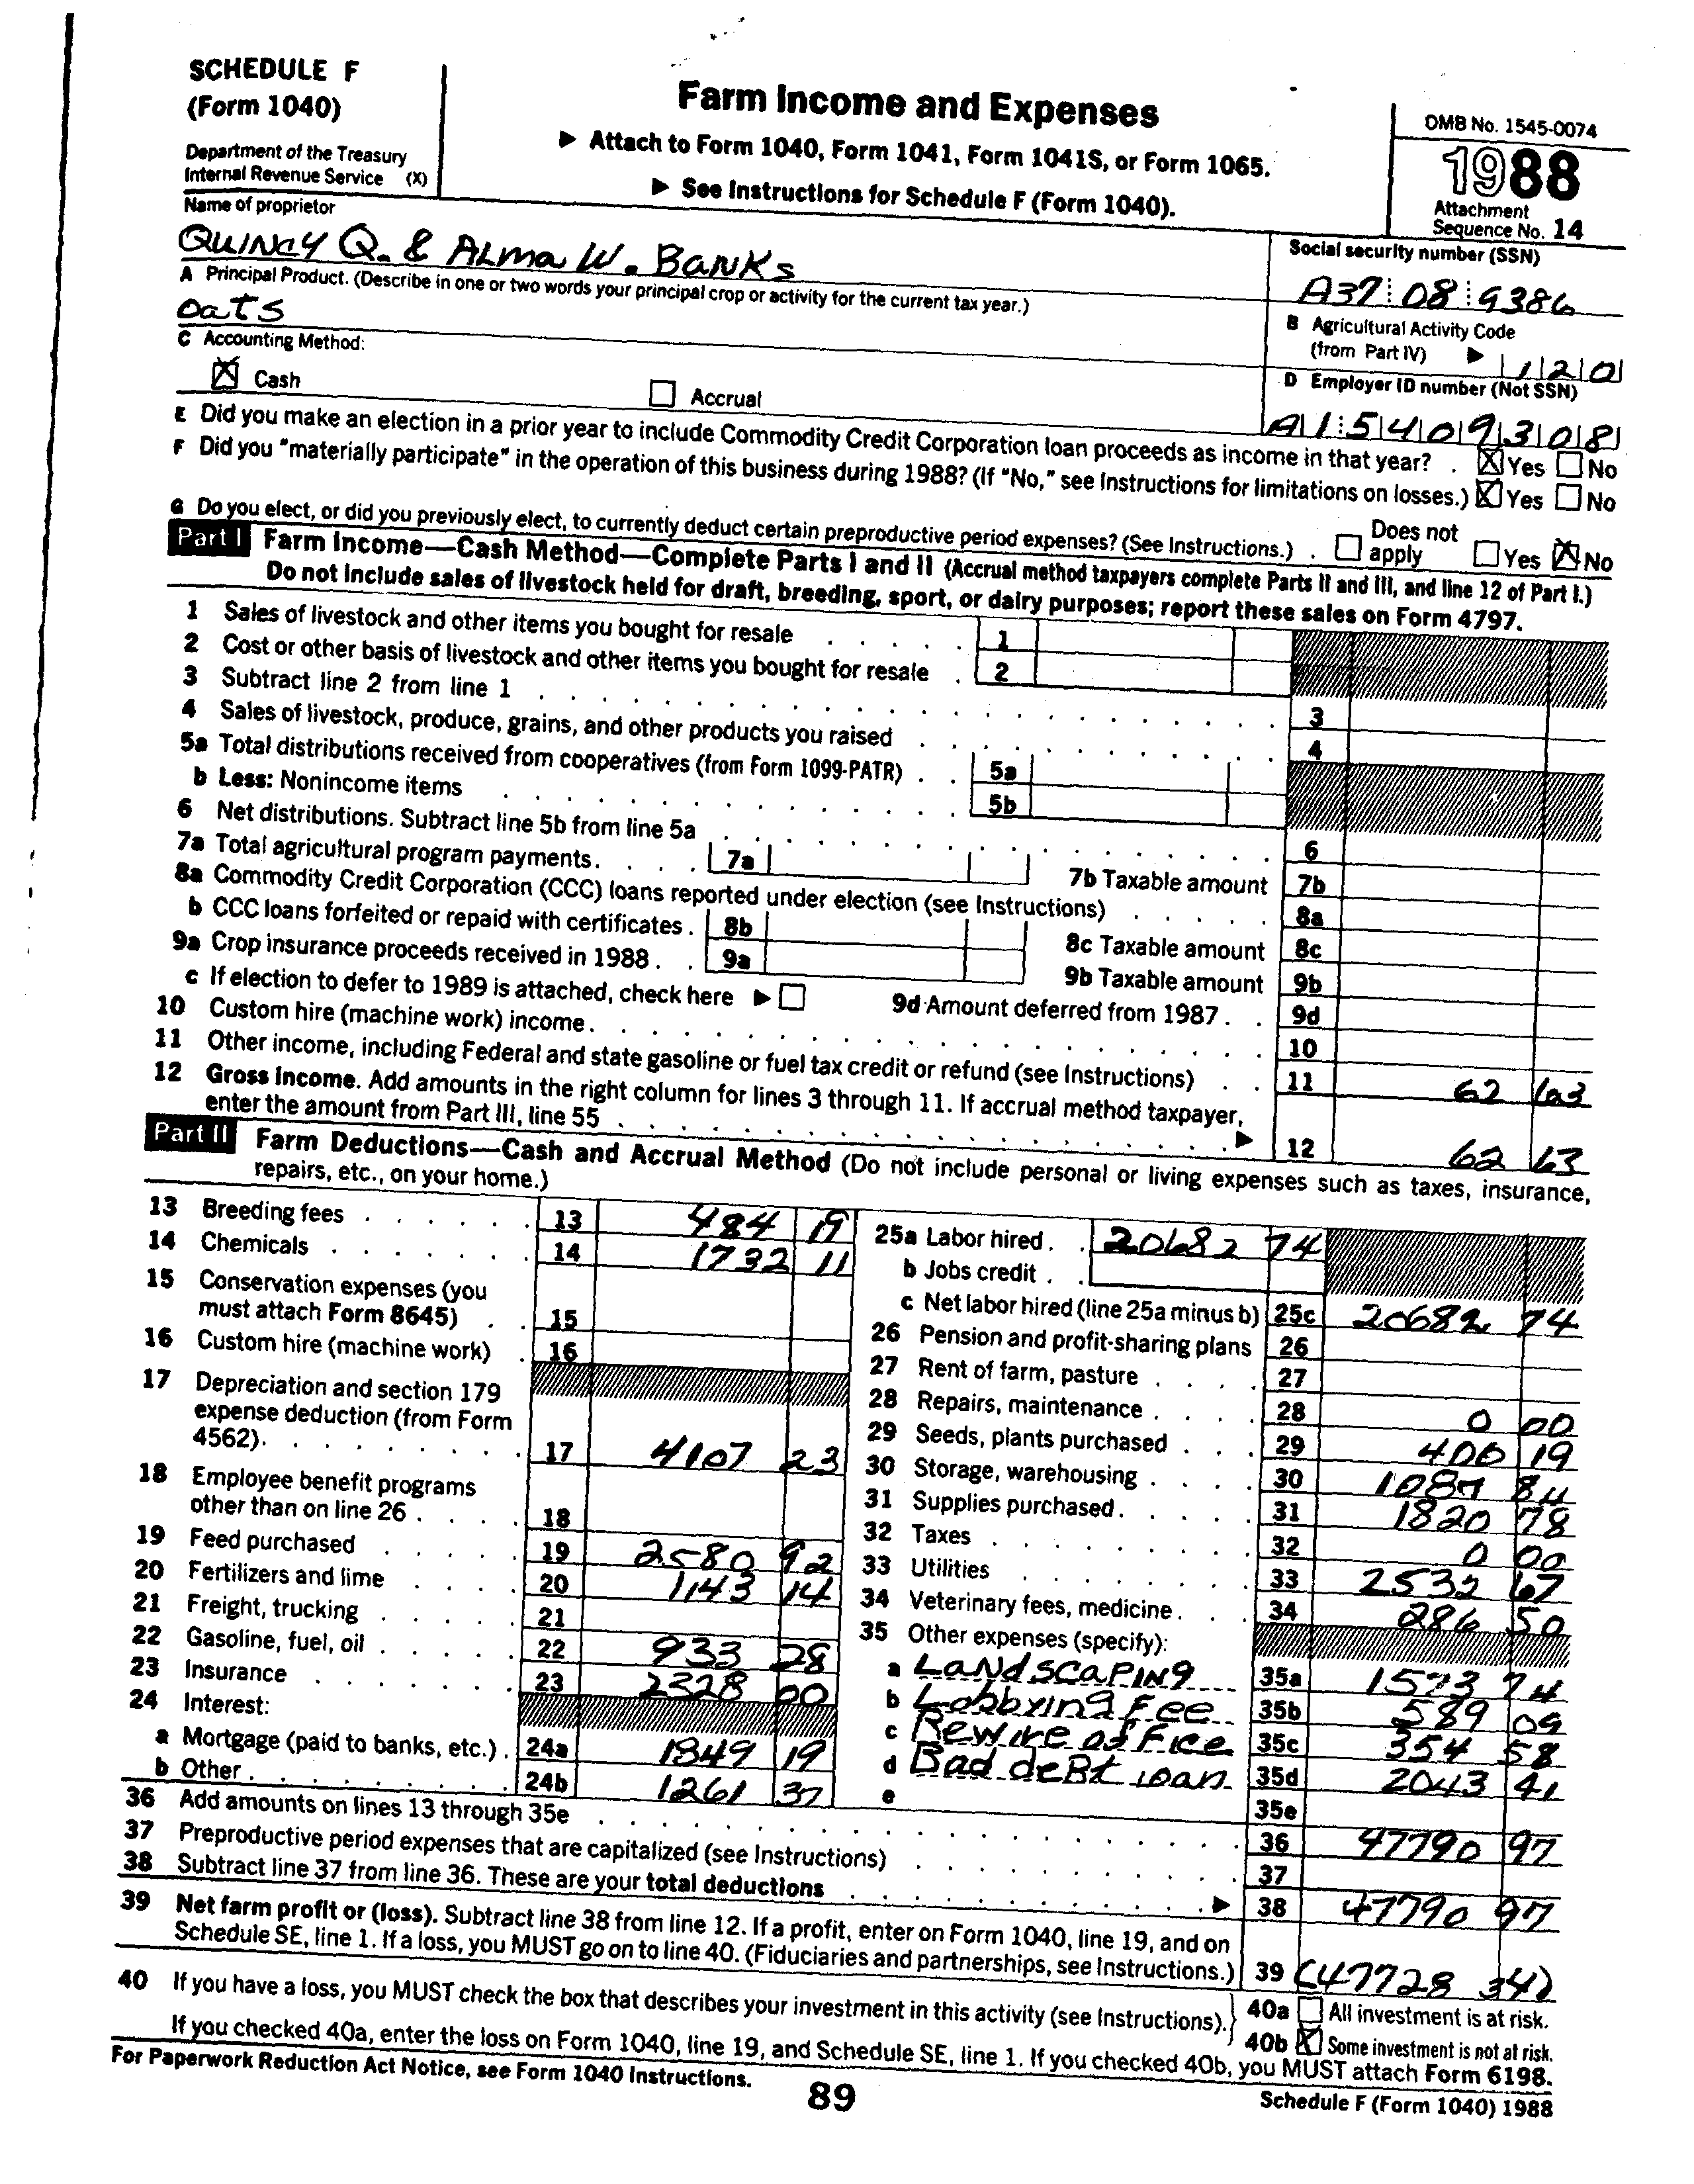 SCHEDULE F
(Form 1040)
Department of the Treasury
Internal Revenue Service (X)
Farm Income and Expenses
▶ Attach to Form 1040, Form 1041, Form 1041S, or Form 1065.
▶ See Instructions for Schedule F (Form 1040).
OMB No. 1545-0074
1988
Attachment
Sequence No. 14
Name of proprietor
QUINCY Q. & ALMA W. BANKS
Social security number (SSN)
A37 08 9386
A Principal Product. (Describe in one or two words your principal crop or activity for the current tax year.)
OATS
B Agricultural Activity Code
(from Part IV) ▶ 120
C Accounting Method:
☒ Cash ☐ Accrual
D Employer ID number (Not SSN)
A1 5409308
E Did you make an election in a prior year to include Commodity Credit Corporation loan proceeds as income in that year? . ☒ Yes ☐ No
F Did you "materially participate" in the operation of this business during 1988? (If "No," see Instructions for limitations on losses.) ☒ Yes ☐ No
G Do you elect, or did you previously elect, to currently deduct certain preproductive period expenses? (See Instructions.) . ☐ Does not apply ☐ Yes ☒ No
Part I Farm Income—Cash Method—Complete Parts I and II (Accrual method taxpayers complete Parts II and III, and line 12 of Part I.)
Do not include sales of livestock held for draft, breeding, sport, or dairy purposes; report these sales on Form 4797.
1 Sales of livestock and other items you bought for resale 1
2 Cost or other basis of livestock and other items you bought for resale 2
3 Subtract line 2 from line 1 3
4 Sales of livestock, produce, grains, and other products you raised 4
5a Total distributions received from cooperatives (from Form 1099-PATR) 5a
b Less: Nonincome items 5b
6 Net distributions. Subtract line 5b from line 5a 6
7a Total agricultural program payments. 7a 7b Taxable amount 7b
8a Commodity Credit Corporation (CCC) loans reported under election (see Instructions) 8a
b CCC loans forfeited or repaid with certificates . 8b 8c Taxable amount 8c
9a Crop insurance proceeds received in 1988 . 9a 9b Taxable amount 9b
c If election to defer to 1989 is attached, check here ▶ ☐ 9d Amount deferred from 1987 . . 9d
10 Custom hire (machine work) income . 10
11 Other income, including Federal and state gasoline or fuel tax credit or refund (see Instructions) 11 62 63
12 Gross Income. Add amounts in the right column for lines 3 through 11. If accrual method taxpayer,
enter the amount from Part III, line 55 ▶ 12 62 63
Part II Farm Deductions—Cash and Accrual Method (Do not include personal or living expenses such as taxes, insurance,
repairs, etc., on your home.)
13 Breeding fees 13 484 19
14 Chemicals 14 1732 11
15 Conservation expenses (you
must attach Form 8645) 15
16 Custom hire (machine work) 16
17 Depreciation and section 179
expense deduction (from Form
4562). 17 4107 23
18 Employee benefit programs
other than on line 26 18
19 Feed purchased 19 2580 92
20 Fertilizers and lime 20 1143 14
21 Freight, trucking 21
22 Gasoline, fuel, oil 22 933 28
23 Insurance 23 2328 00
24 Interest:
a Mortgage (paid to banks, etc.) . 24a 1849 19
b Other . 24b 1261 37
25a Labor hired . 20682 74
b Jobs credit .
c Net labor hired (line 25a minus b) 25c 20682 74
26 Pension and profit-sharing plans 26
27 Rent of farm, pasture 27
28 Repairs, maintenance 28 0 00
29 Seeds, plants purchased 29 400 19
30 Storage, warehousing 30 1087 84
31 Supplies purchased . 31 1820 78
32 Taxes 32 0 00
33 Utilities 33 2532 67
34 Veterinary fees, medicine . 34 286 50
35 Other expenses (specify):
a LANDSCAPING 35a 1573 74
b Lobbying Fee 35b 589 09
c Rewire office 35c 354 58
d Bad debt loan 35d 2043 41
e 35e
36 Add amounts on lines 13 through 35e 36 47790 97
37 Preproductive period expenses that are capitalized (see Instructions) 37
38 Subtract line 37 from line 36. These are your total deductions ▶ 38 47790 97
39 Net farm profit or (loss). Subtract line 38 from line 12. If a profit, enter on Form 1040, line 19, and on
Schedule SE, line 1. If a loss, you MUST go on to line 40. (Fiduciaries and partnerships, see Instructions.) 39 (47728 34)
40 If you have a loss, you MUST check the box that describes your investment in this activity (see Instructions). 40a ☐ All investment is at risk.
40b ☒ Some investment is not at risk.
If you checked 40a, enter the loss on Form 1040, line 19, and Schedule SE, line 1. If you checked 40b, you MUST attach Form 6198.
For Paperwork Reduction Act Notice, see Form 1040 Instructions.
89
Schedule F (Form 1040) 1988